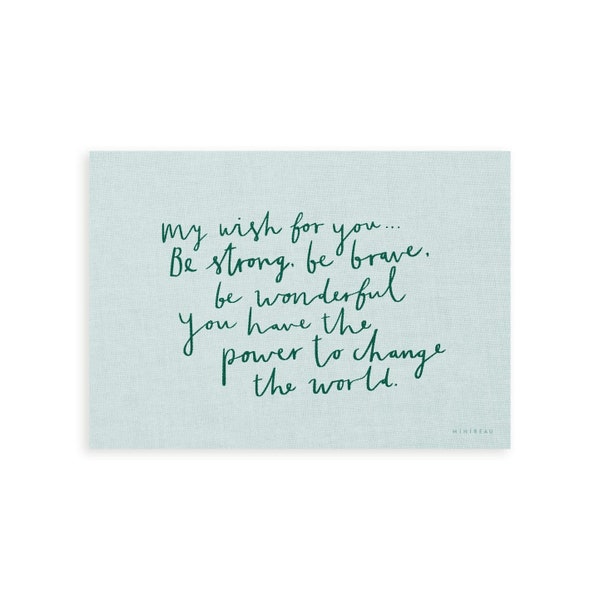 My wish for you...
Be strong. be brave.
be wonderful
You have the
power to change
the world.
MINIREAU